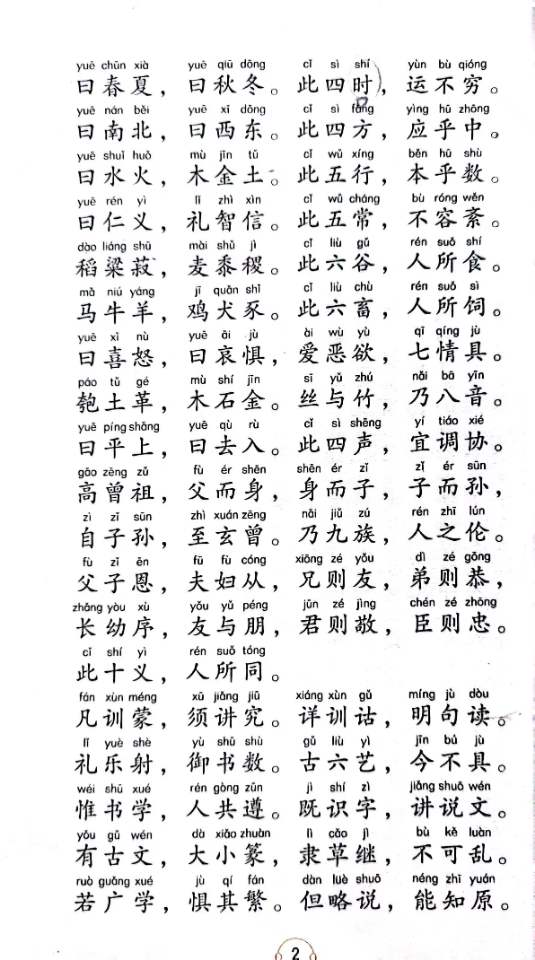 yuē chūn xià yuē qiū dōng cǐ sì shí yùn bù qióng
曰春夏，曰秋冬。此四时，运不穷。
yuē nán běi yuē xī dōng cǐ sì fāng yìng hū zhōng
曰南北，曰西东。此四方，应乎中。
yuē shuǐ huǒ mù jīn tǔ cǐ wǔ xíng běn hū shù
曰水火，木金土。此五行，本乎数。
yuē rén yì lǐ zhì xìn cǐ wǔ cháng bù róng wěn
曰仁义，礼智信。此五常，不容紊。
dào liáng shū mài shǔ jì cǐ liù gǔ rén suǒ shí
稻粱菽，麦黍稷。此六谷，人所食。
mǎ niú yáng jī quǎn shǐ cǐ liù chù rén suǒ sì
马牛羊，鸡犬豕。此六畜，人所饲。
yuē xǐ nù yuē āi jù ài wù yù qī qíng jù
曰喜怒，曰哀惧，爱恶欲，七情具。
páo tǔ gé mù shí jīn sī yǔ zhú nǎi bā yīn
匏土革，木石金。丝与竹，乃八音。
yuē píng shǎng yuē qù rù cǐ sì shēng yí tiáo xié
曰平上，曰去入。此四声，宜调协。
gāo zēng zǔ fù ér shēn shēn ér zǐ zǐ ér sūn
高曾祖，父而身，身而子，子而孙，
zì zǐ sūn zhì xuán zēng nǎi jiǔ zú rén zhī lún
自子孙，至玄曾。乃九族，人之伦。
fù zǐ ēn fū fù cóng xiōng zé yǒu dì zé gōng
父子恩，夫妇从，兄则友，弟则恭，
zhǎng yòu xù yǒu yǔ péng jūn zé jìng chén zé zhōng
长幼序，友与朋，君则敬，臣则忠。
cǐ shí yì rén suǒ tóng
此十义，人所同。
fán xùn méng xū jiǎng jiū xiáng xùn gǔ míng jù dòu
凡训蒙，须讲究。详训诂，明句读。
lǐ yuè shè yù shū shù gǔ liù yì jīn bú jù
礼乐射，御书数。古六艺，今不具。
wéi shū xué rén gòng zūn jì shí zì jiǎng shuō wén
惟书学，人共遵。既识字，讲说文。
yǒu gǔ wén dà xiǎo zhuàn lì cǎo jì bù kě luàn
有古文，大小篆，隶草继，不可乱。
ruò guǎng xué jù qí fán dàn lüè shuō néng zhī yuán
若广学，惧其繁。但略说，能知原。
2